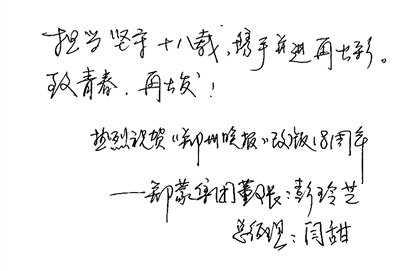 担当坚守十八载，携手并进再出彩。
致青春，再出发！
热烈祝贺《郑州晚报》改版18周年
——郑蒙集团董事长：彭玲芝
总经理：闫甜